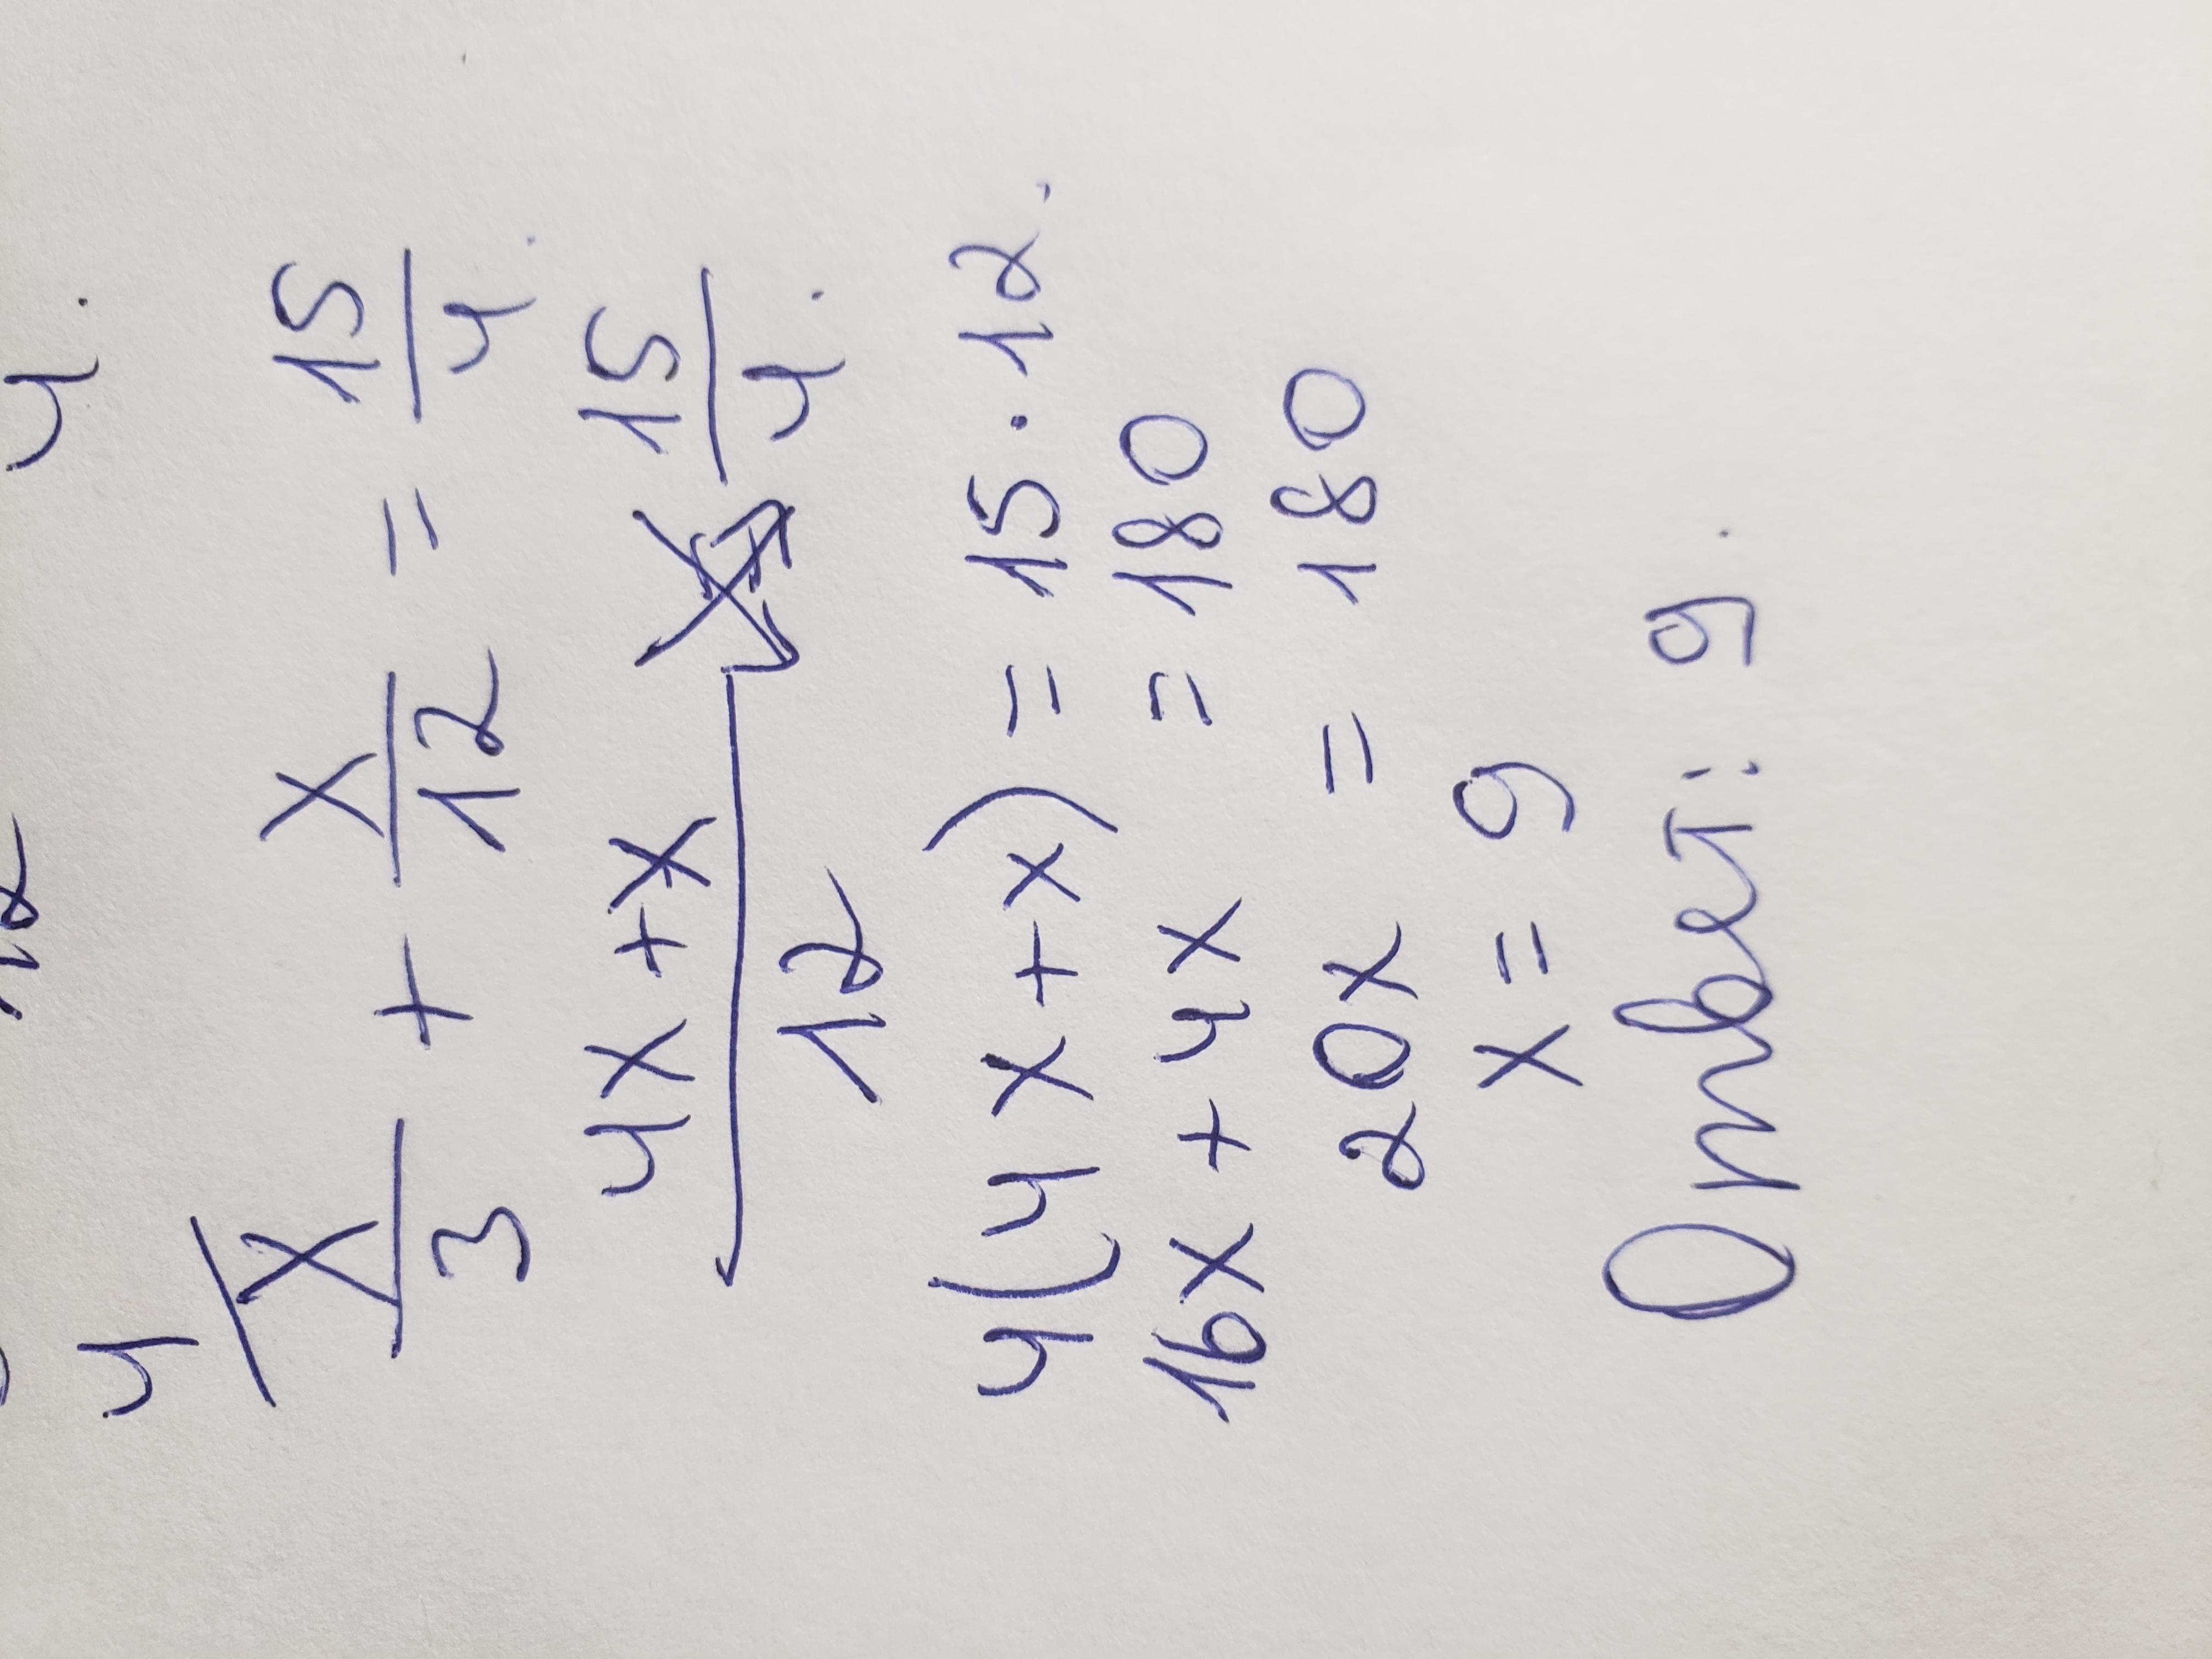 4.
4
x/3 + x/12 = 15/4.
4x + x / 12 15/4.
4(4x + x) = 15 · 12.
16x + 4x = 180
20x = 180
x = 9
Ответ: 9.